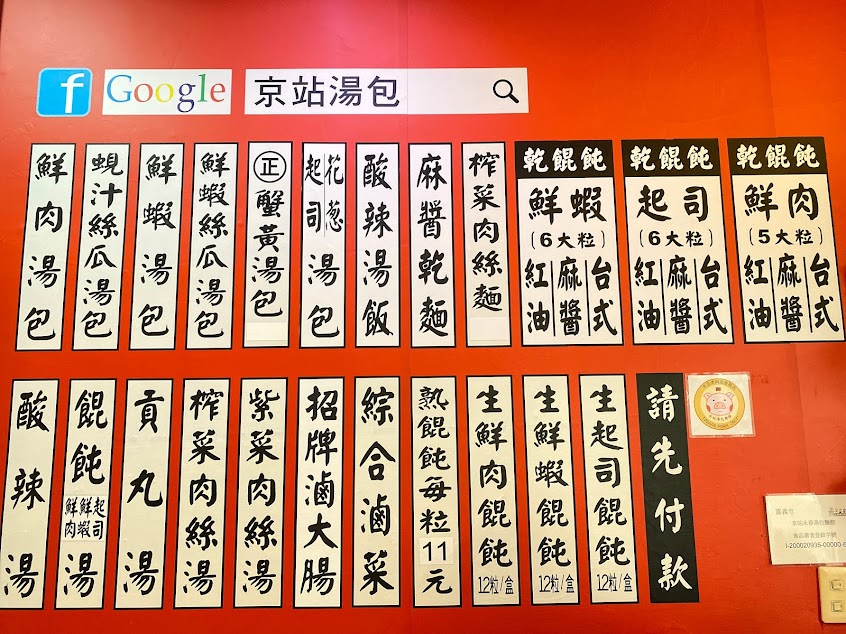 f Google 京站湯包
鮮肉湯包
蜆汁絲瓜湯包
鮮蝦湯包
鮮蝦絲瓜湯包
正蟹黃湯包
起司 花蔥 湯包
酸辣湯飯
麻醬乾麵
榨菜肉絲麵
乾餛飩
鮮蝦
(6大粒)
紅油 麻醬 台式
乾餛飩
起司
(6大粒)
紅油 麻醬 台式
乾餛飩
鮮肉
(5大粒)
紅油 麻醬 台式
酸辣湯
餛飩 鮮肉 鮮蝦 起司 湯
貢丸湯
榨菜肉絲湯
紫菜肉絲湯
招牌滷大腸
綜合滷菜
熟餛飩每粒11元
生鮮肉餛飩
12粒/盒
生鮮蝦餛飩
12粒/盒
生起司餛飩
12粒/盒
請先付款
嘉義市